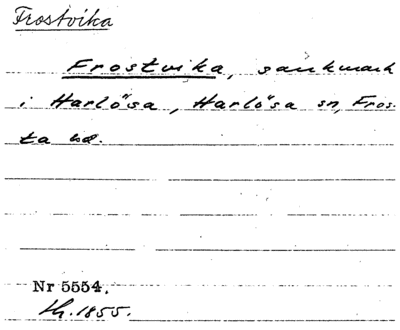 Frostvika
Frostvika, sankmark
i Harlösa, Harlösa sn, Fros-
ta hd.
Nr 5554.
1855.